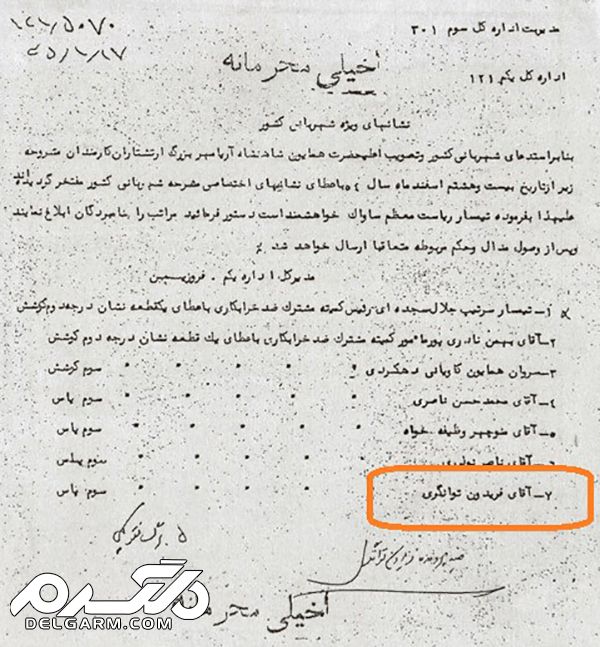 مدیریت اداره کل سوم ۳۰۱
۱۲۱/۵۰۷۰
۴۵/۱/۱۷
خیلی محرمانه
اداره کل یکم ۱۲۱
نشانهای ویژه شهربانی کشور
بنابراستدعای شهربانی کشور و تصویب اعلیحضرت همایون شاهنشاه آریامهر بزرگ ارتشتاران کارمندان مشروحه
زیر از تاریخ بیست وهشتم اسفند ماه سال باعطای نشانهای اختصاصی مشرحه شهربانی کشور مفتخر گردیده اند
علیهذا بفرموده تیمسار ریاست معظم ساواک خواهشمند است دستور فرمائید مراتب را بنامبردگان ابلاغ نمایند
وپس از وصول مدال و حکم مربوطه متعاقبا ارسال خواهد شد
مدیرکل اداره یکم . فروزیسین
۱ـ تیمسار سرتیپ جلال سجده ای ـ رئیس کمیته مشترك ضد خرابکاری باعطای یکقطعه نشان درجه دوم کوشش
۲ـ آقای بهمن نادری پور مامور کمیته مشترك ضد خرابکاری باعطای یك قطعه نشان درجه دوم کوشش
۳ـ سروان همایون کاویانی دهکردی " " " " " سوم کوشش
۴ـ آقای محمد حسن ناصری " " " " " سوم پاس
۵ـ آقای منوچهر وظیفه خواه " " " " " سوم پاس
۶ـ آقای ناصر نوذری " " " " " سوم پاس
۷ـ آقای فریدون توانگری " " " " " سوم پاس
خیلی محرمانه
دلگرم
DELGARM.COM